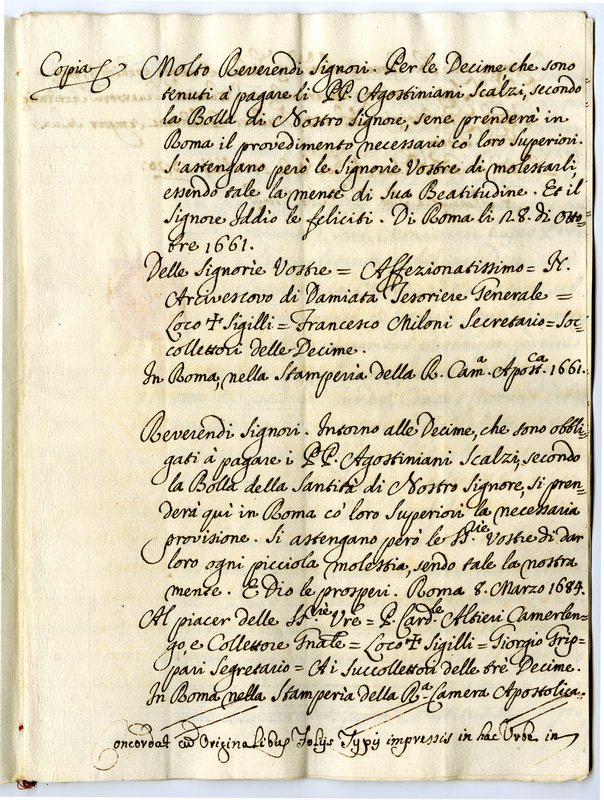 Copia
Molto Reverendi Signori. Per le Decime, che sono
tenuti à pagare li PP. Agostiniani Scalzi, secondo
la Bolla di Nostro Signore, sene prenderà in
Roma il provedimento necessario co' loro Superiori.
S'astengano però le Signorie Vostre di molestarli,
essendo tale la mente di Sua Beatitudine. Et il
Signore Iddio le feliciti. Di Roma li 28. di Otto=
bre 1661.
Delle Signorie Vostre = Affezionatissimo = N.
Arcivescovo di Damiata Tesoriere Generale =
Loco + Sigilli = Francesco Miloni Secretario = Soc=
collettori delle Decime.
In Roma, nella Stamperia della R. Camª. Apostᶜª. 1661.
Reverendi Signori. Intorno alle Decime, che sono obbli=
gati à pagare i PP. Agostiniani Scalzi, secondo
la Bolla della Santità di Nostro Signore, si pren=
derà quì in Roma co' loro Superiori la necessaria
provisione. Si astengano però le SSʳⁱᵉ Vostre di dar
loro ogni picciola molestia, sendo tale la nostra
mente. E Dio le prosperi. Roma 8. Marzo 1684.
Al piacer delle SSʳⁱᵉ Vre = P. Cardˡᵉ Altieri Camerlen=
go, e Collettore Gnale = Loco + Sigilli = Giorgio Grip=
pari Segretario = Ai Succollettori delle trè Decime.
In Roma, nella Stamperia della Rª. Camera Apostolica.
Concordat cum Originalibus Folijs Typis impressis in hac Urbe in